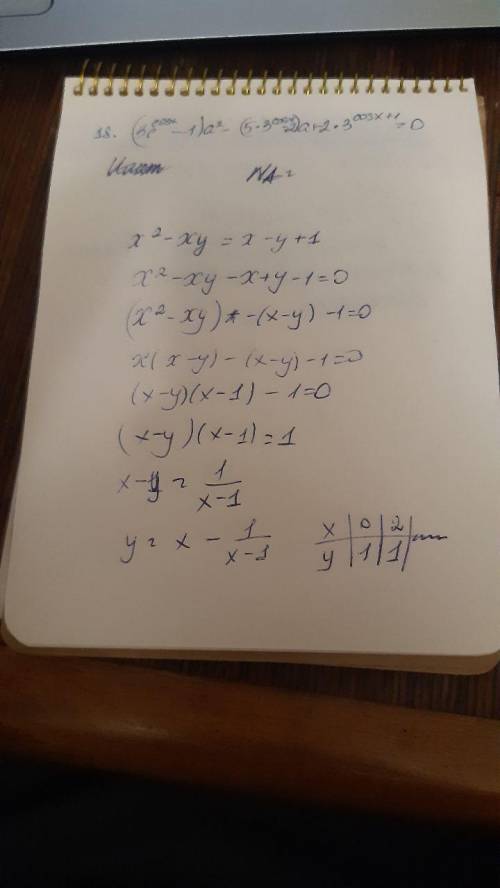 18. (3^cosx - 1)a² - (5·3^cosx - 2)a + 2·3^cosx+1 = 0
x² - xy = x - y + 1
x² - xy - x + y - 1 = 0
(x² - xy) - (x - y) - 1 = 0
x(x - y) - (x - y) - 1 = 0
(x - y)(x - 1) - 1 = 0
(x - y)(x - 1) = 1
x - y = 1/(x - 1)
y = x - 1/(x - 1)  x | 0 | 2 |
y | 1 | 1 |